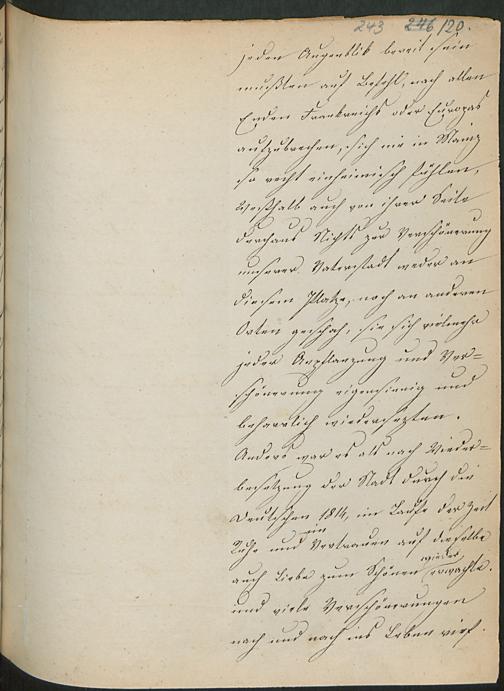 243 246/20.
jeden Augenblik bereit sein
mußten auf Befehl, nach allen
Enden Frankreichs oder Europas
aufzubrechen, sich nie in Mainz
so recht einheimisch fühlen,
weßhalb auch von ihrer Seite
durchaus Nichts zur Verschönerung
unserer Vaterstadt weder an
diesem Platze, noch an anderen
Orten geschah, sie sich vielmehr
jeder Anpflanzung und Ver=
schönerung eigensinnig und
beharrlich wiedersezten.
Anders war es als nach Wieder=
besetzung der Stadt durch die
Deutschen 1814, im Laufe der Zeit
Ruhe und Vertrauen auf dieselbe
ein
auch Liebe zum Schönen erwachte.
wieder
und viele Verschönerungen
nach und nach ins Leben rief.